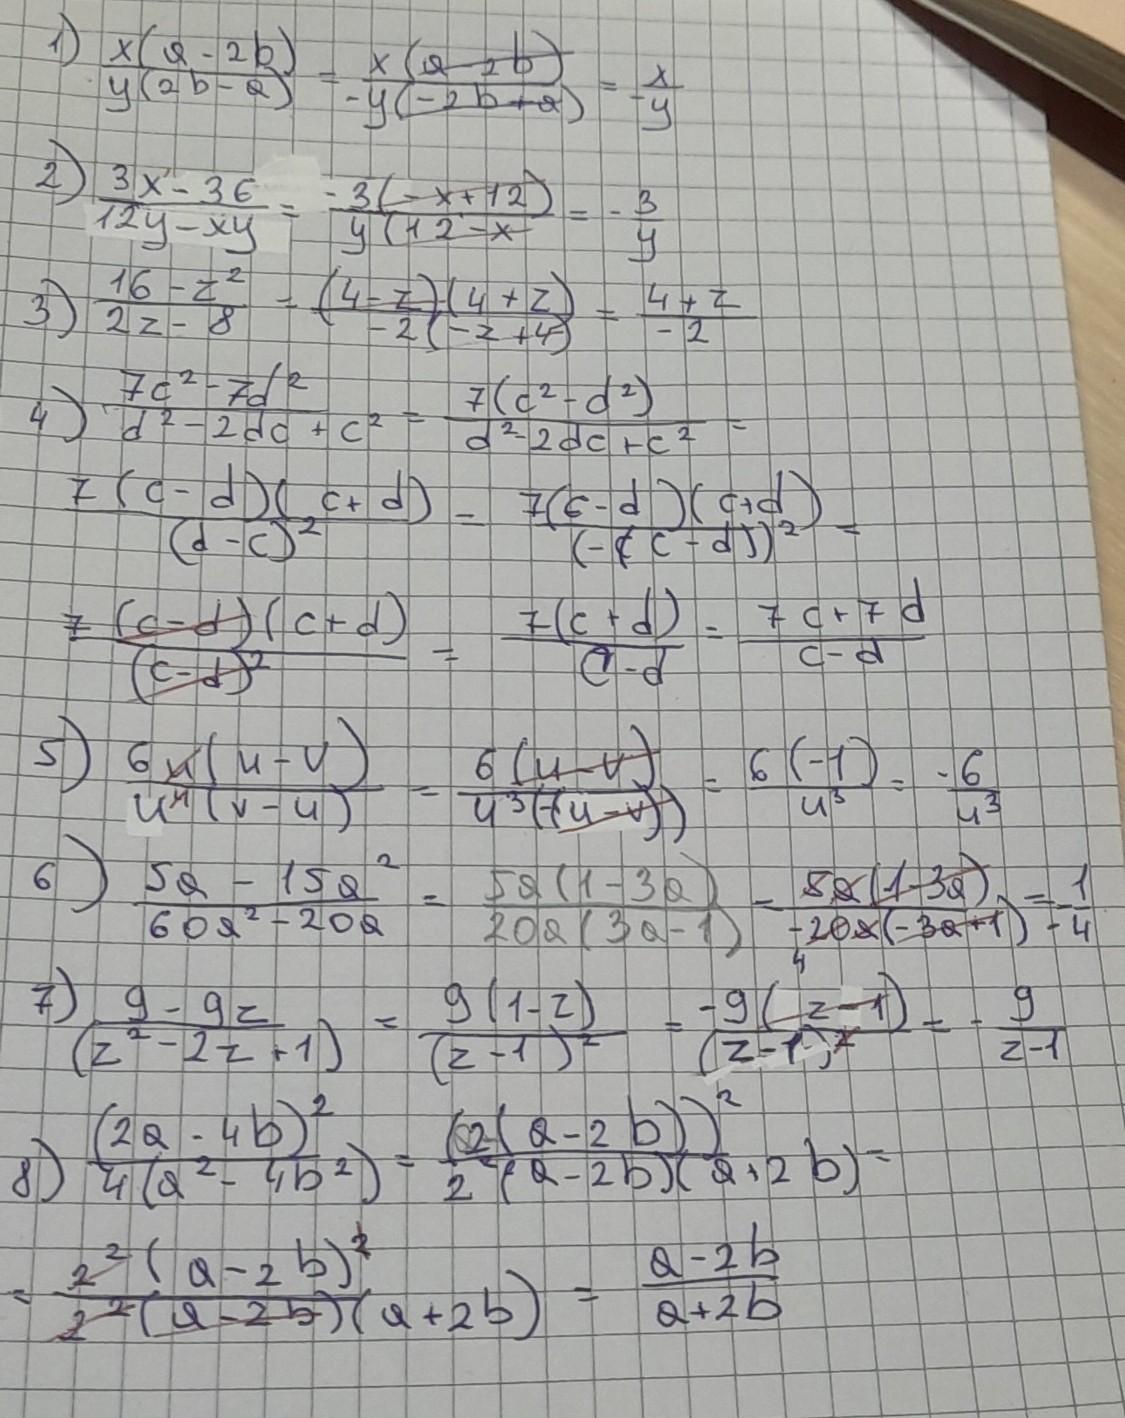 1) x(a-2b)/y(2b-a) = x(a-2b)/-y(-2b+a) = x/-y
2) 3x-36/12y-xy = -3(-x+12)/y(12-x = -3/y
3) 16-z²/2z-8 = (4-z)(4+z)/-2(-z+4) = 4+z/-2
4) 7c²-7d²/d²-2dc+c² = 7(c²-d²)/d²-2dc+c² =
7(c-d)(c+d)/(d-c)² = 7(c-d)(c+d)/(-(c-d))² =
7(c-d)(c+d)/(c-d)² = 7(c+d)/c-d = 7c+7d/c-d
5) 6u(u-v)/u⁴(v-u) = 6(u-v)/u³(-(u-v)) = 6(-1)/u³ = -6/u³
6) 5a-15a²/60a²-20a = 5a(1-3a)/20a(3a-1) = 5a(1-3a)/-20a(-3a+1) = -1/-4
4
7) 9-9z/(z²-2z+1) = 9(1-z)/(z-1)² = -9(z-1)/(z-1)² = -9/z-1
8) (2a-4b)²/4(a²-4b²) = (2(a-2b))²/2²(a-2b)(a+2b) =
= 2²(a-2b)²/2²(a-2b)(a+2b) = a-2b/a+2b